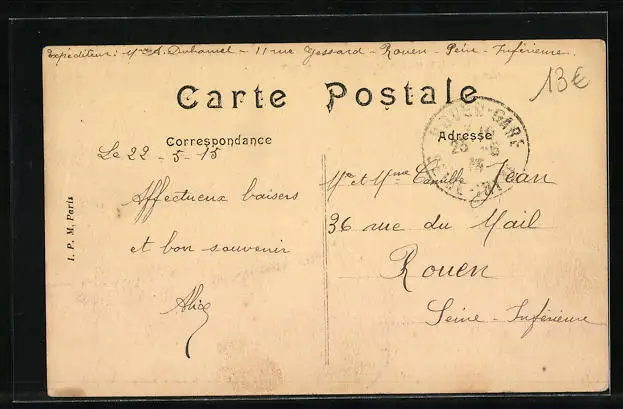 Expéditeur: Mme A. Duhamel - 11 rue Jessard - Rouen - Seine - Inférieure.
13€
Carte Postale
Correspondance
Adresse
ROUEN-GARE
25
Le 22-5-15
Affectueux baisers
et bon souvenir
Alice
Mr et Mme Camille Jean
36 rue du Mail
Rouen
Seine - Inférieure
I. P. M. Paris